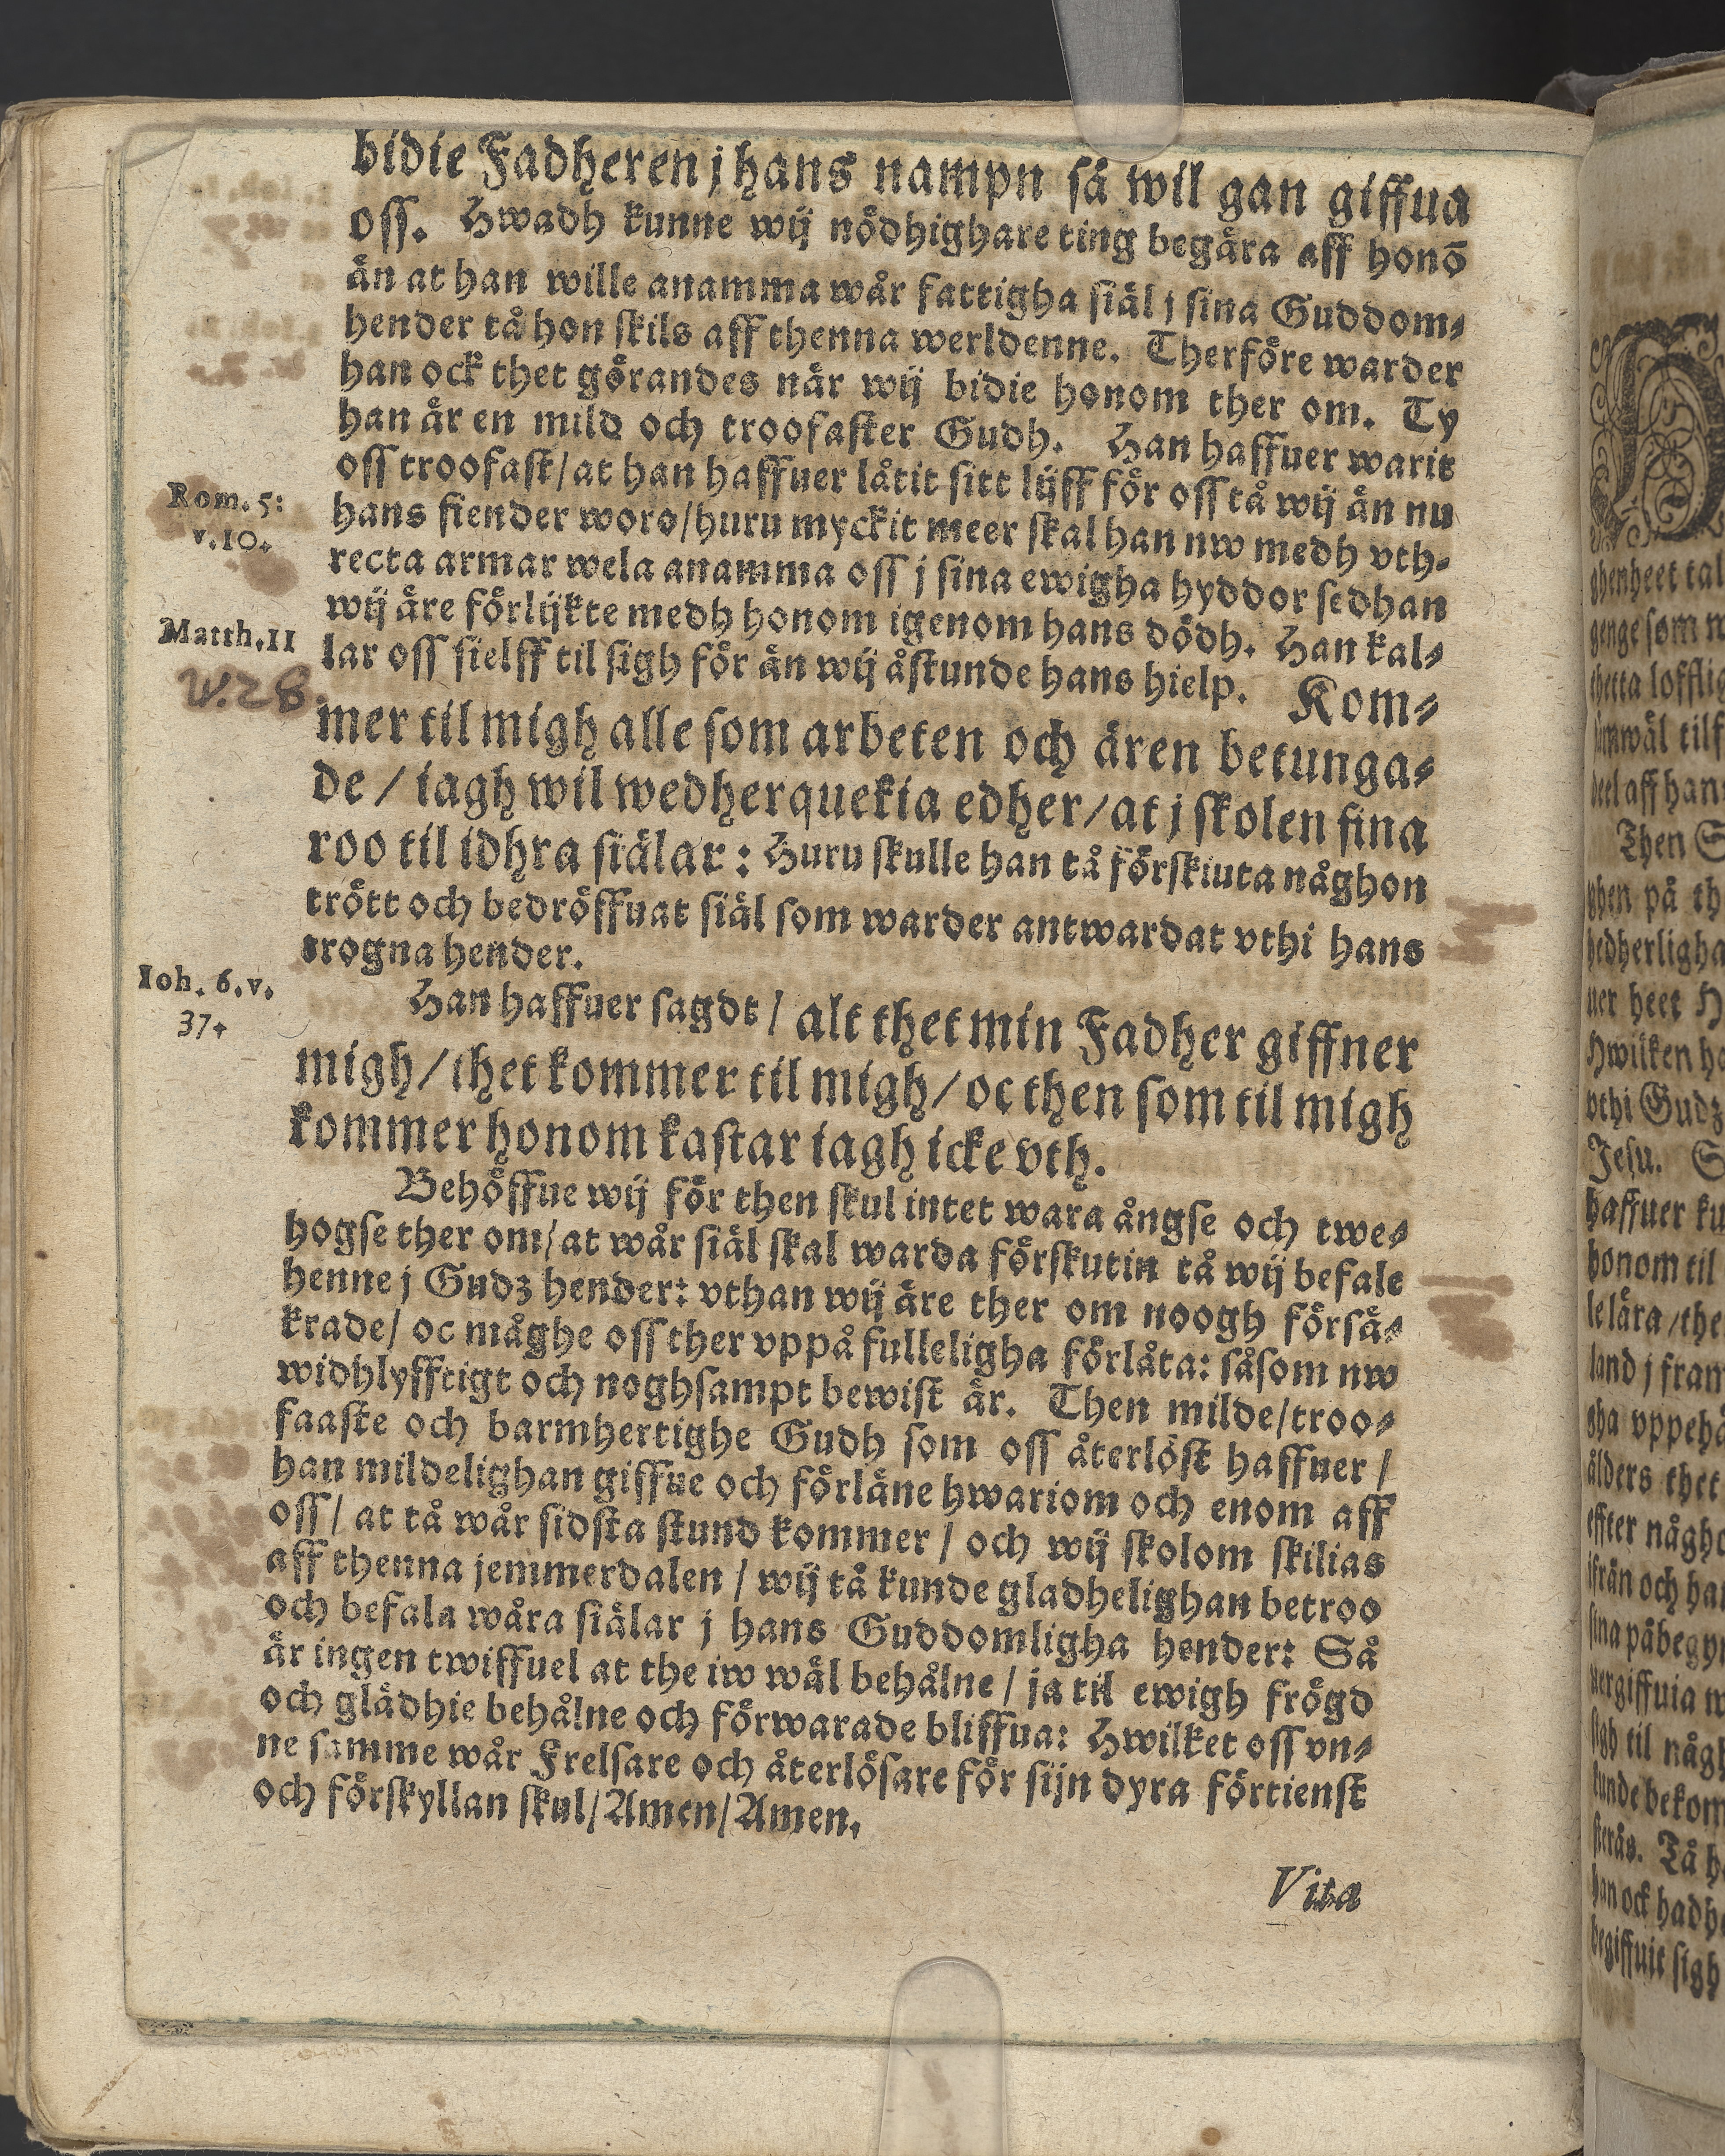 bidie Fadheren j hans nampn så wil gan giffua
oss. Hwadh kunne wij nödhighare ting begära aff honō
än at han wille anamma wår fattigha siäl j sina Guddom-
hender tå hon skils aff thenna werldenne. Therföre warder
han ock thet görandes när wij bidie honom ther om. Ty
han är en mild och troofaster Gudh. Han haffuer warit
oss troofast/ at han haffuer låtit sitt lijff för oss tå wij än nu
Rom. 5:
v. 10.
hans fiender woro/ huru myckit meer skal han nw medh vth-
recta armar wela anamma oss j sina ewigha hyddor sedhan
wij äre förlijkte medh honom igenom hans dödh. Han kal-
Matth. 11
V. 28.
lar oss sielff til sigh för än wij åstunde hans hielp. Kom-
mer til migh alle som arbeten och ären betunga-
de / iagh wil wedherquekia edher/ at j skolen fina
roo til idhra siälar: Huru skulle han tå förskiuta någhon
trött och bedröffuat siäl som warder antwardat vthi hans
trogna hender.
Ioh. 6. v.
37.
Han haffuer sagdt / alt thet min Fadher giffner
migh/ thet kommer til migh/ oc then som til migh
kommer honom kastar iagh icke vth.
Behöffue wij för then skul intet wara ångse och twe-
hogse ther om/ at wår siäl skal warda förskutin tå wij befale
henne j Gudz hender: vthan wij äre ther om noogh försä-
krade/ oc måghe oss ther vppå fulleligha förlåta: såsom nw
widhlyfftigt och noghsampt bewist är. Then milde/ troo-
faaste och barmhertighe Gudh som oss återlöst haffuer /
han mildelighan giffue och förläne hwariom och enom aff
oss/ at tå wår sidsta stund kommer / och wij skolom skilias
aff thenna jemmerdalen / wij tå kunde gladhelighan betroo
och befala wåra siälar j hans Guddomligha hender: Så
är ingen twiffuel at the iw wäl behålne / ja til ewigh frögd
och glädhie behålne och förwarade bliffua: Hwilket oss vn-
ne samme wår Frelsare och återlösare för sijn dyra förtienst
och förskyllan skul/ Amen/ Amen.
Vita
ghenheet tal
genge som
thetta
wäl
aff han
Then
på th
hedherligha
uer heet
Hwilken
vthi Gudz
Jesu.
haffuer
honom til
lära / the
land j
vppehå
ålders thet
effter någho
och
til någh
Tå
han ock
sigh